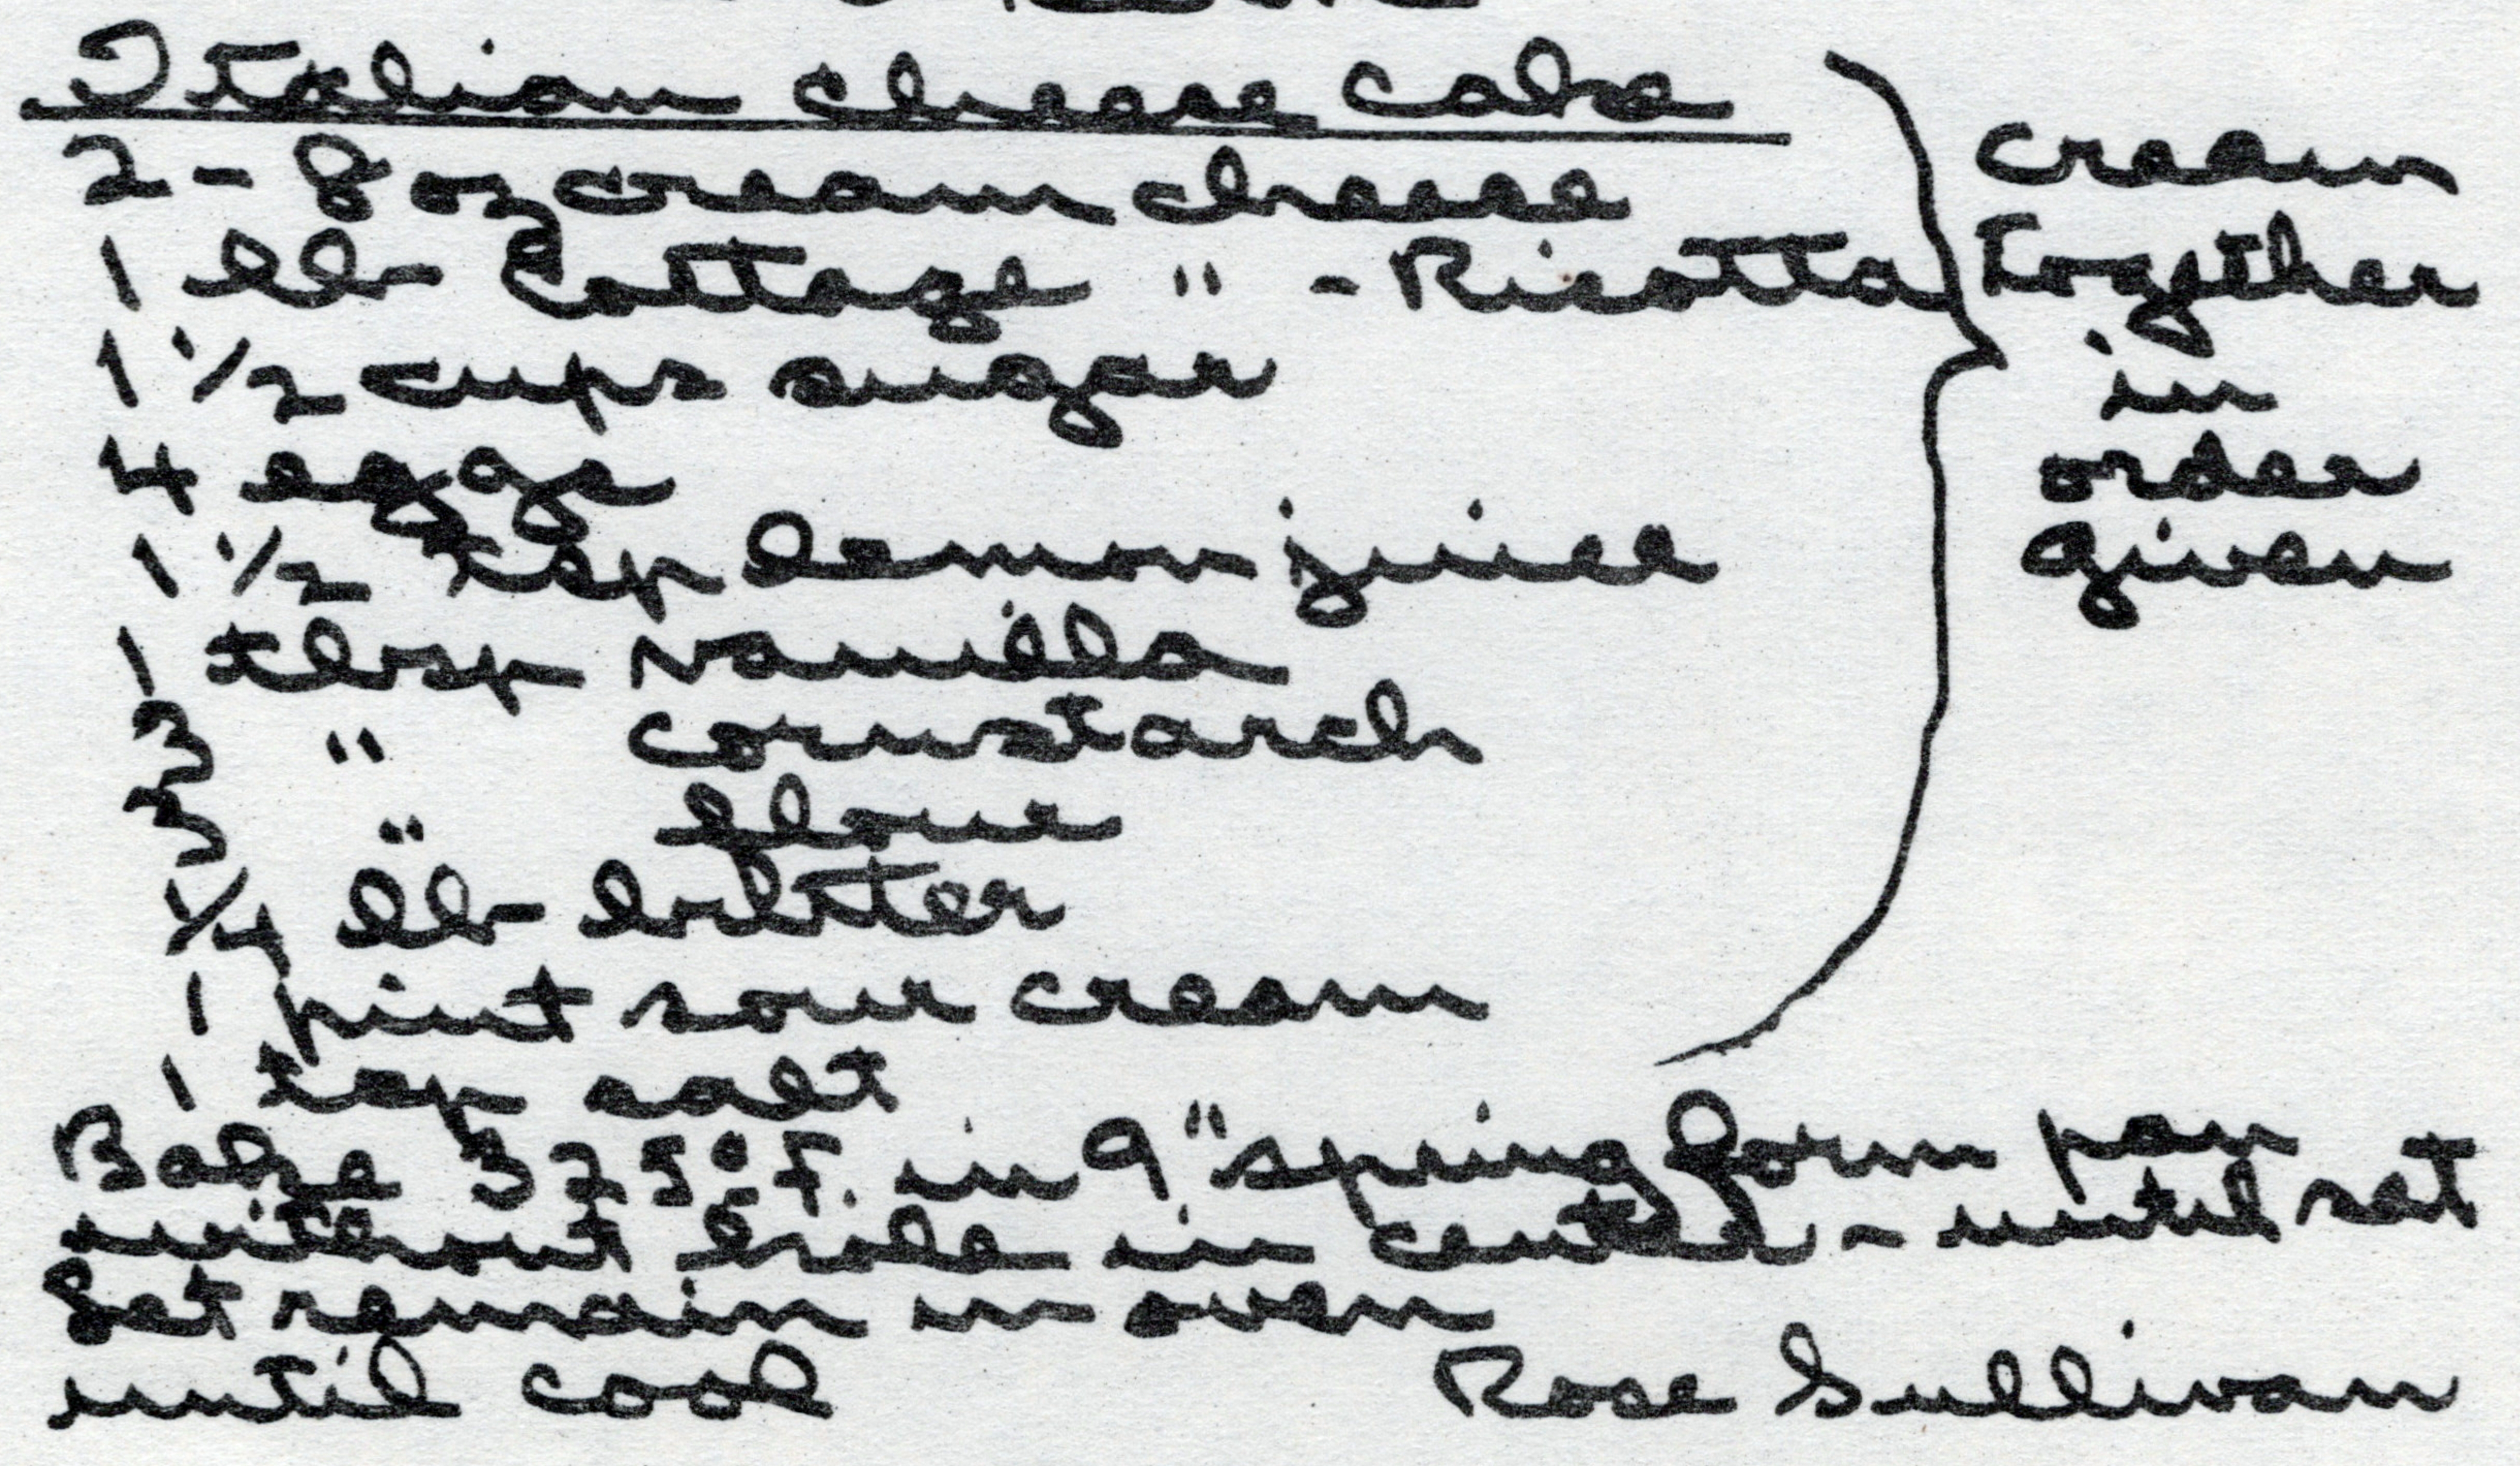 Italian cheese cake
2 - 8 oz cream cheese
1 lb Cottage " - Ricotta
1 1/2 cups sugar
4 eggs
1 1/2 tsp lemon juice
1 tbsp vanilla
3 " cornstarch
3 " flour
1/4 lb butter
1 pint sour cream
1 tsp salt
cream
together
in
order
given
Bake 375° F. in 9" spring form pan
without hole in center - until set
Let remain in oven
until cool
Rose Sullivan